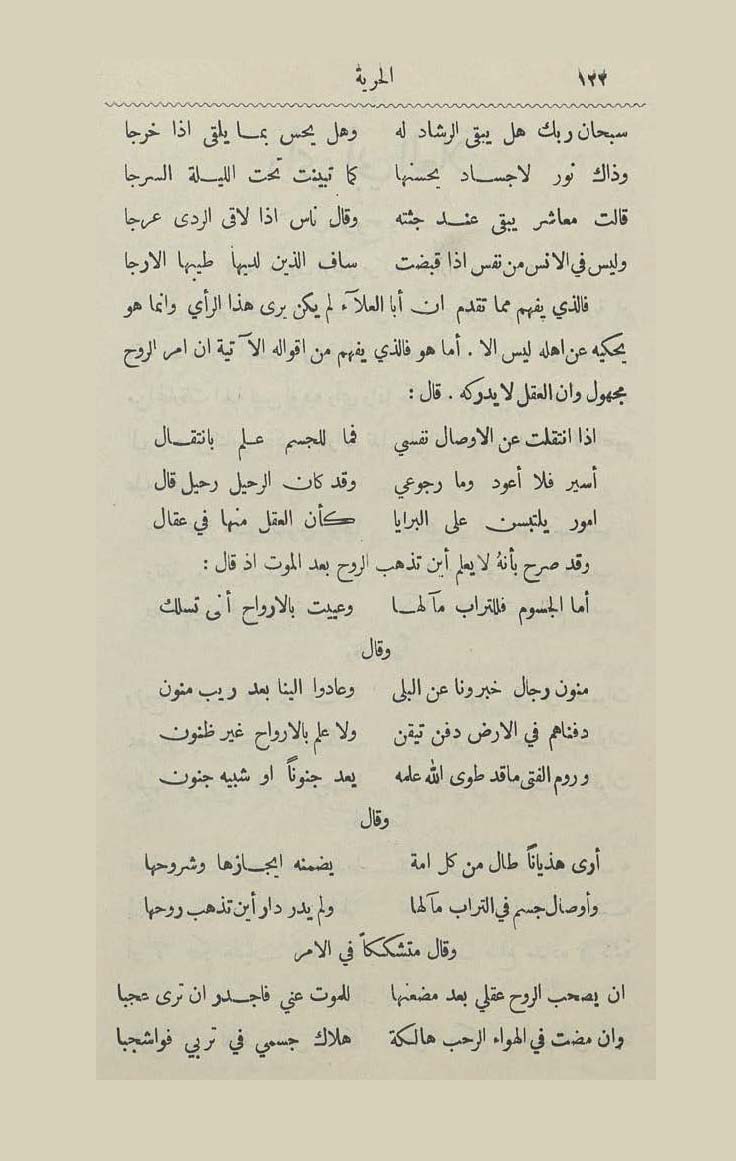 ١٢٣ الحرية
سبحان ربك هل يبقى الرشاد له وهل يحس بما يلقى اذا خرجا
وذاك نور لاجساد يحسنها كما تبينت تحت الليلة السرجا
قالت معاشر يبقى عند جثته وقال ناس اذا لاقى الردى عرجا
وليس في الانس من نفس اذا قبضت ساف الذين لديها طيبها الارجا
فالذي يفهم مما تقدم ان أبا العلآء لم يكن يرى هذا الرأي وانما هو
يحكيه عن اهله ليس الا . أما هو فالذي يفهم من اقواله الآتية ان امر الروح
مجهول وان العقل لا يدركه . قال :
اذا انتقلت عن الاوصال نفسي فما للجسم علم بانتقال
أسير فلا أعود وما رجوعي وقد كان الرحيل رحيل قال
امور يلتبسن على البرايا كأن العقل منها في عقال
وقد صرح بأنهُ لا يعلم أين تذهب الروح بعد الموت اذ قال :
أما الجسوم فللتراب مآلها وعييت بالارواح أنى تسلك
وقال
منون رجال خبرونا عن البلى وعادوا الينا بعد ريب منون
دفناهم في الارض دفن تيقن ولا علم بالارواح غير ظنون
وروم الفتى ما قد طوى الله علمه يعد جنوناً او شبيه جنون
وقال
أرى هذياناً طال من كل امة يضمنه ايجازها وشروحها
وأوصال جسم في التراب مآلها ولم يدر دار أين تذهب روحها
وقال متشككاً في الامر
ان يصحب الروح عقلي بعد مضعنها للموت عني فاجدر ان ترى عجبا
وان مضت في الهواء الرحب هالكة هلاك جسمي في تربي فواشجبا